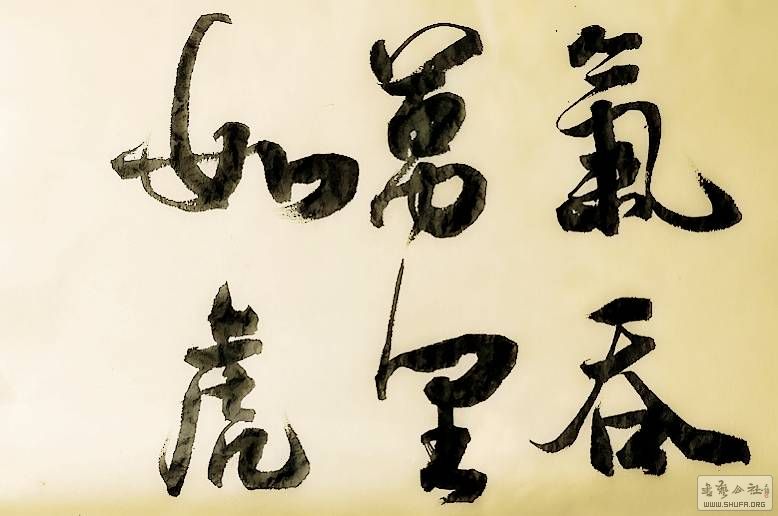 氣吞
萬里
如虎
书艺公社
WWW.SHUFA.ORG